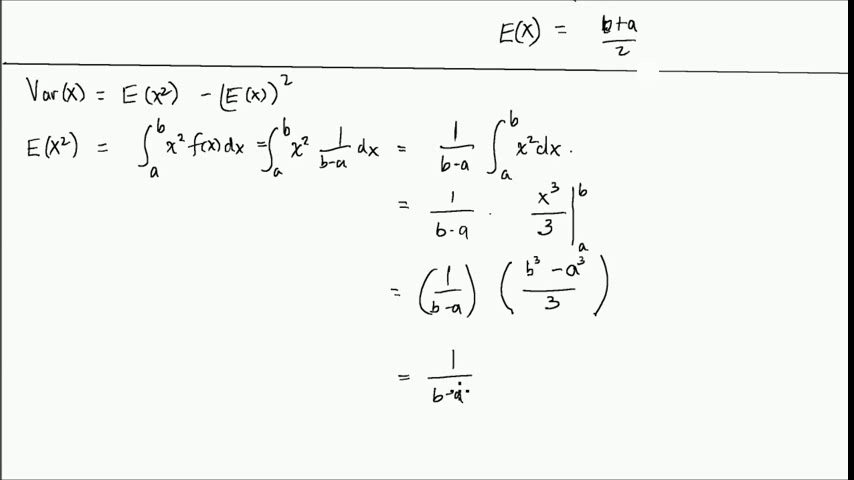 E(X) = b+a/2
Var(x) = E(x²) - (E(x))²
E(x²) = ∫ₐᵇ x² f(x)dx = ∫ₐᵇ x² 1/b-a dx = 1/b-a ∫ₐᵇ x²dx.
= 1/b-a · x³/3 |ₐᵇ
= (1/b-a) (b³-a³/3)
= 1/b-a